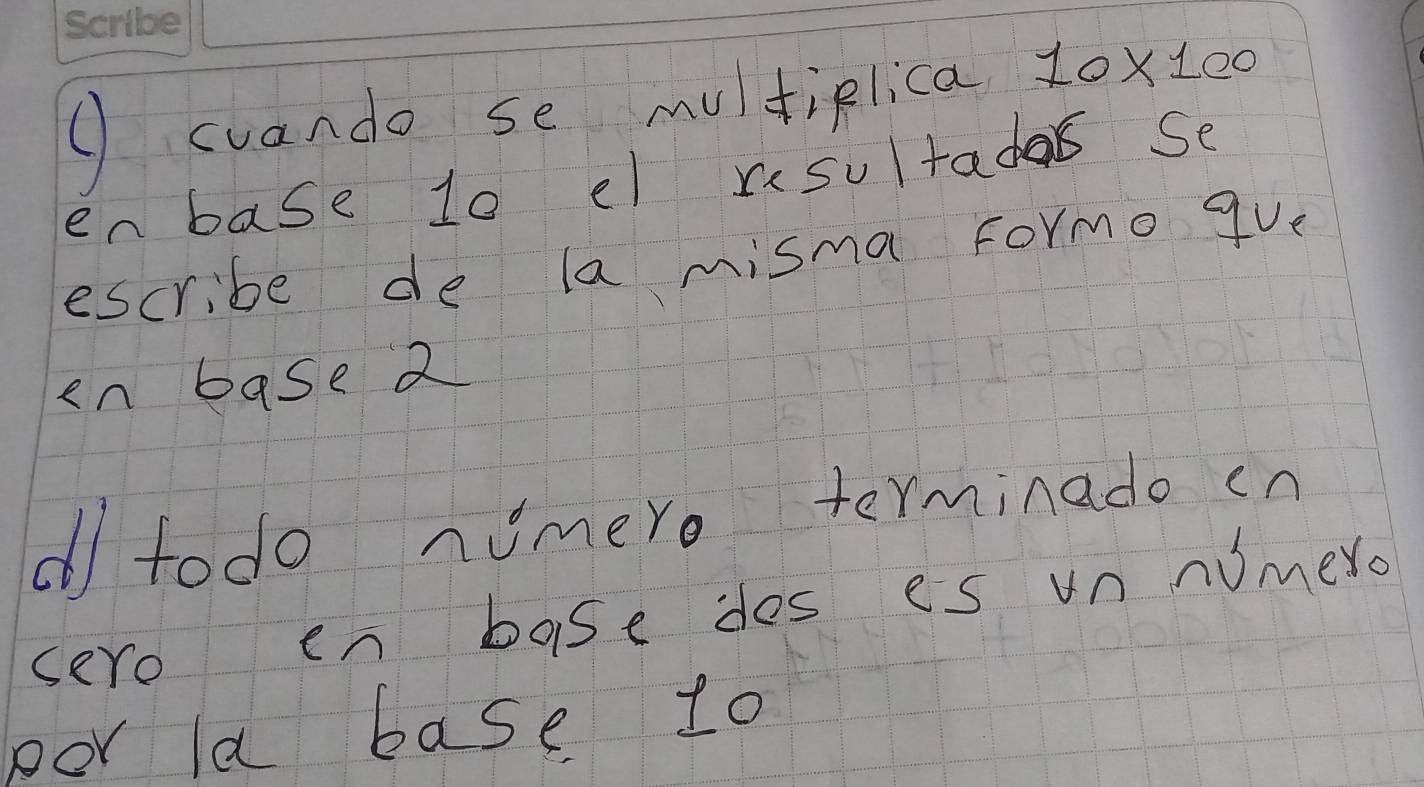 Scribe
c) cuando se multiplica 10x100
en base 10 el resultados se
escribe de la misma formo que
en base 2
d) todo número terminado en
cero en base dos es un número
por la base 10